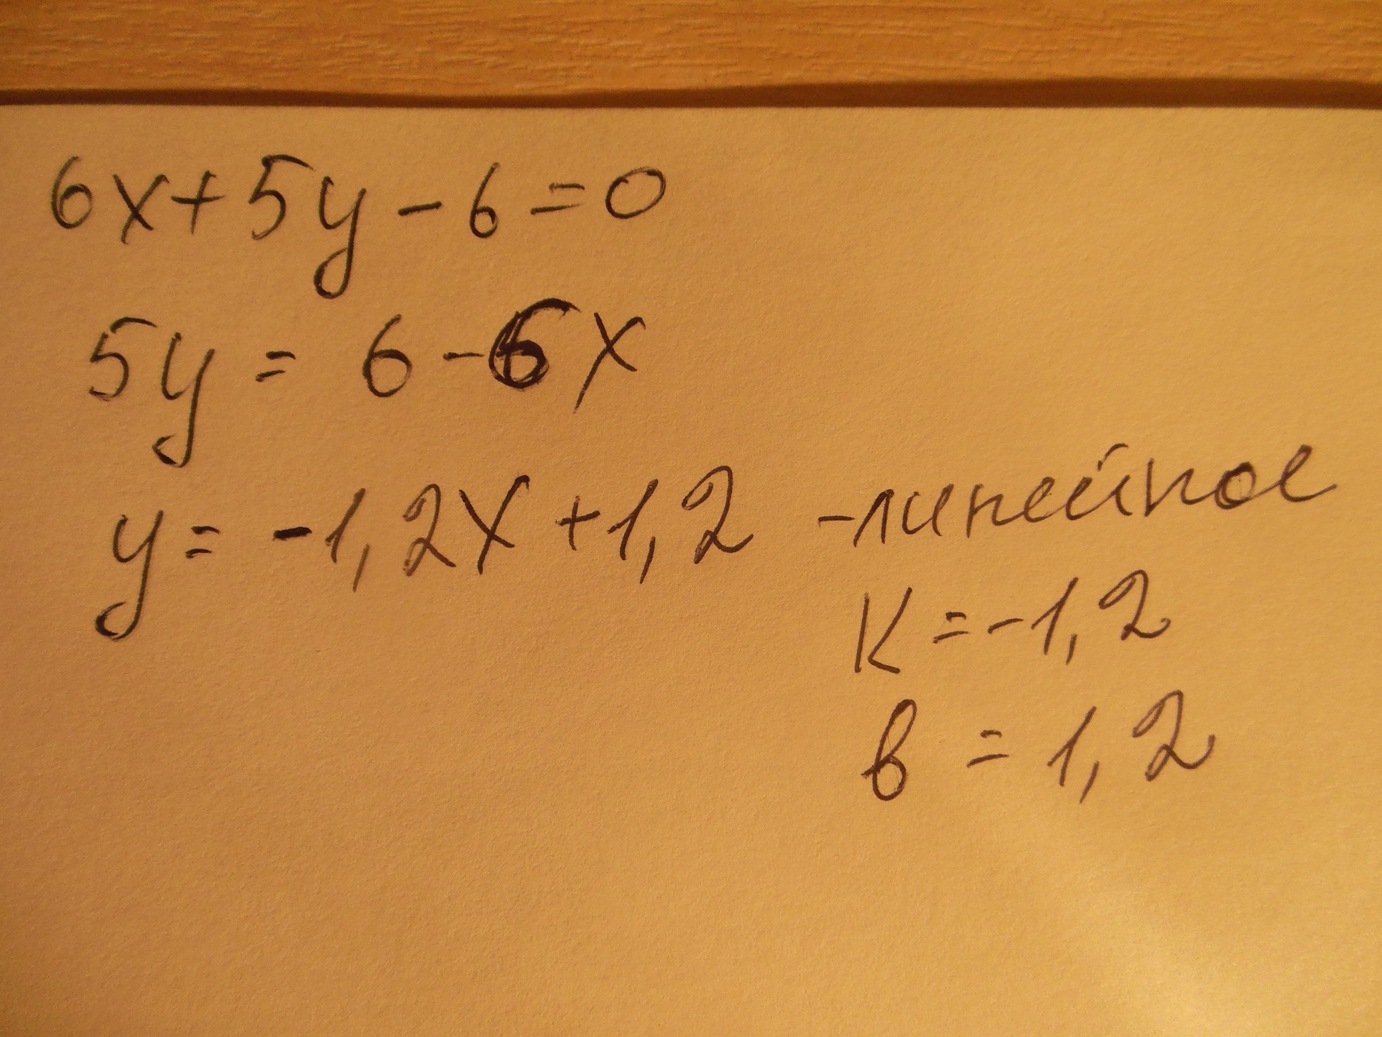 6x+5y-6=0
5y=6-6x
y=-1,2x+1,2 -линейное
K=-1,2
в=1,2